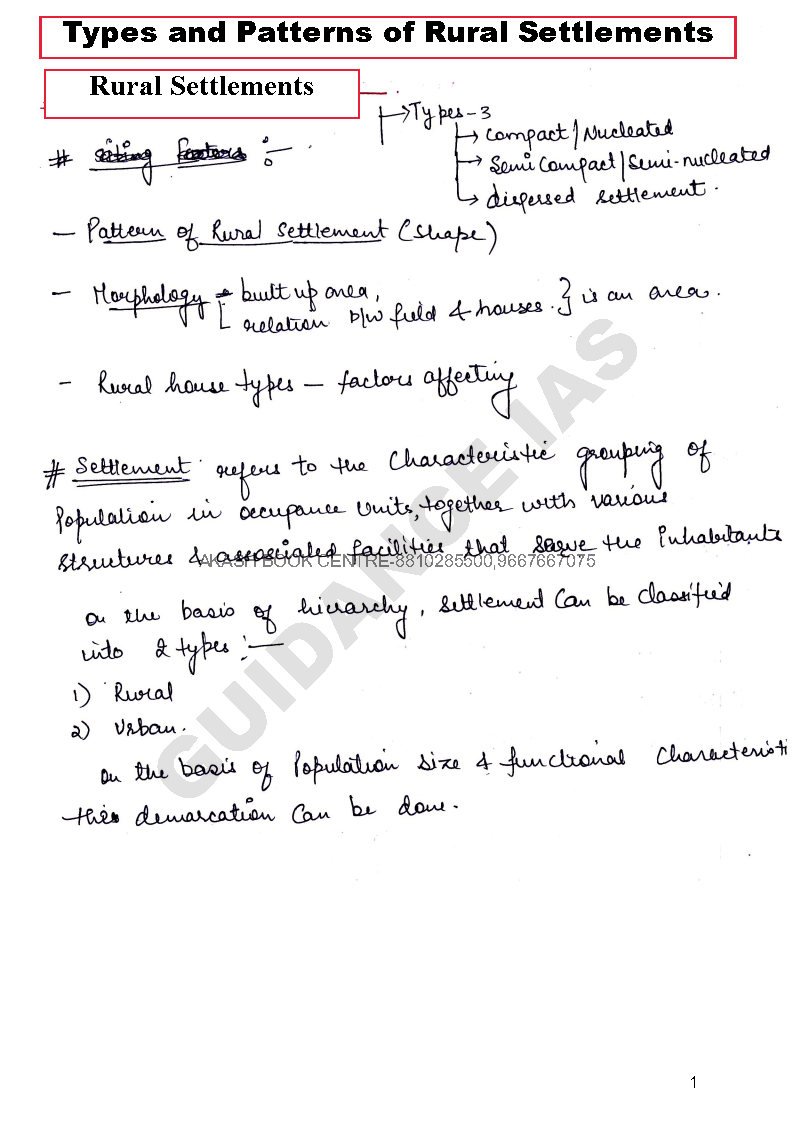 Types and Patterns of Rural Settlements
Rural Settlements
→ Types - 3
# siting factors :—
→ Compact / Nucleated
→ Semi Compact / Semi-nucleated
→ dispersed settlement.
— Pattern of Rural Settlement (Shape)
— Morphology — built up area,
relation b/w field & houses. } is an area.
— Rural house types — factors affecting
# Settlement refers to the Characteristic grouping of
Population in occupance Units, together with various
structures & associated facilities that serve the Inhabitants
AKASH BOOK CENTRE-8810285500,9667667075
on the basis of hierarchy, settlement Can be Classified
into 2 types :—
1) Rural
2) Urban.
on the basis of Population size & functional Characteristi
this demarcation Can be done.
GUIDANCE IAS
1